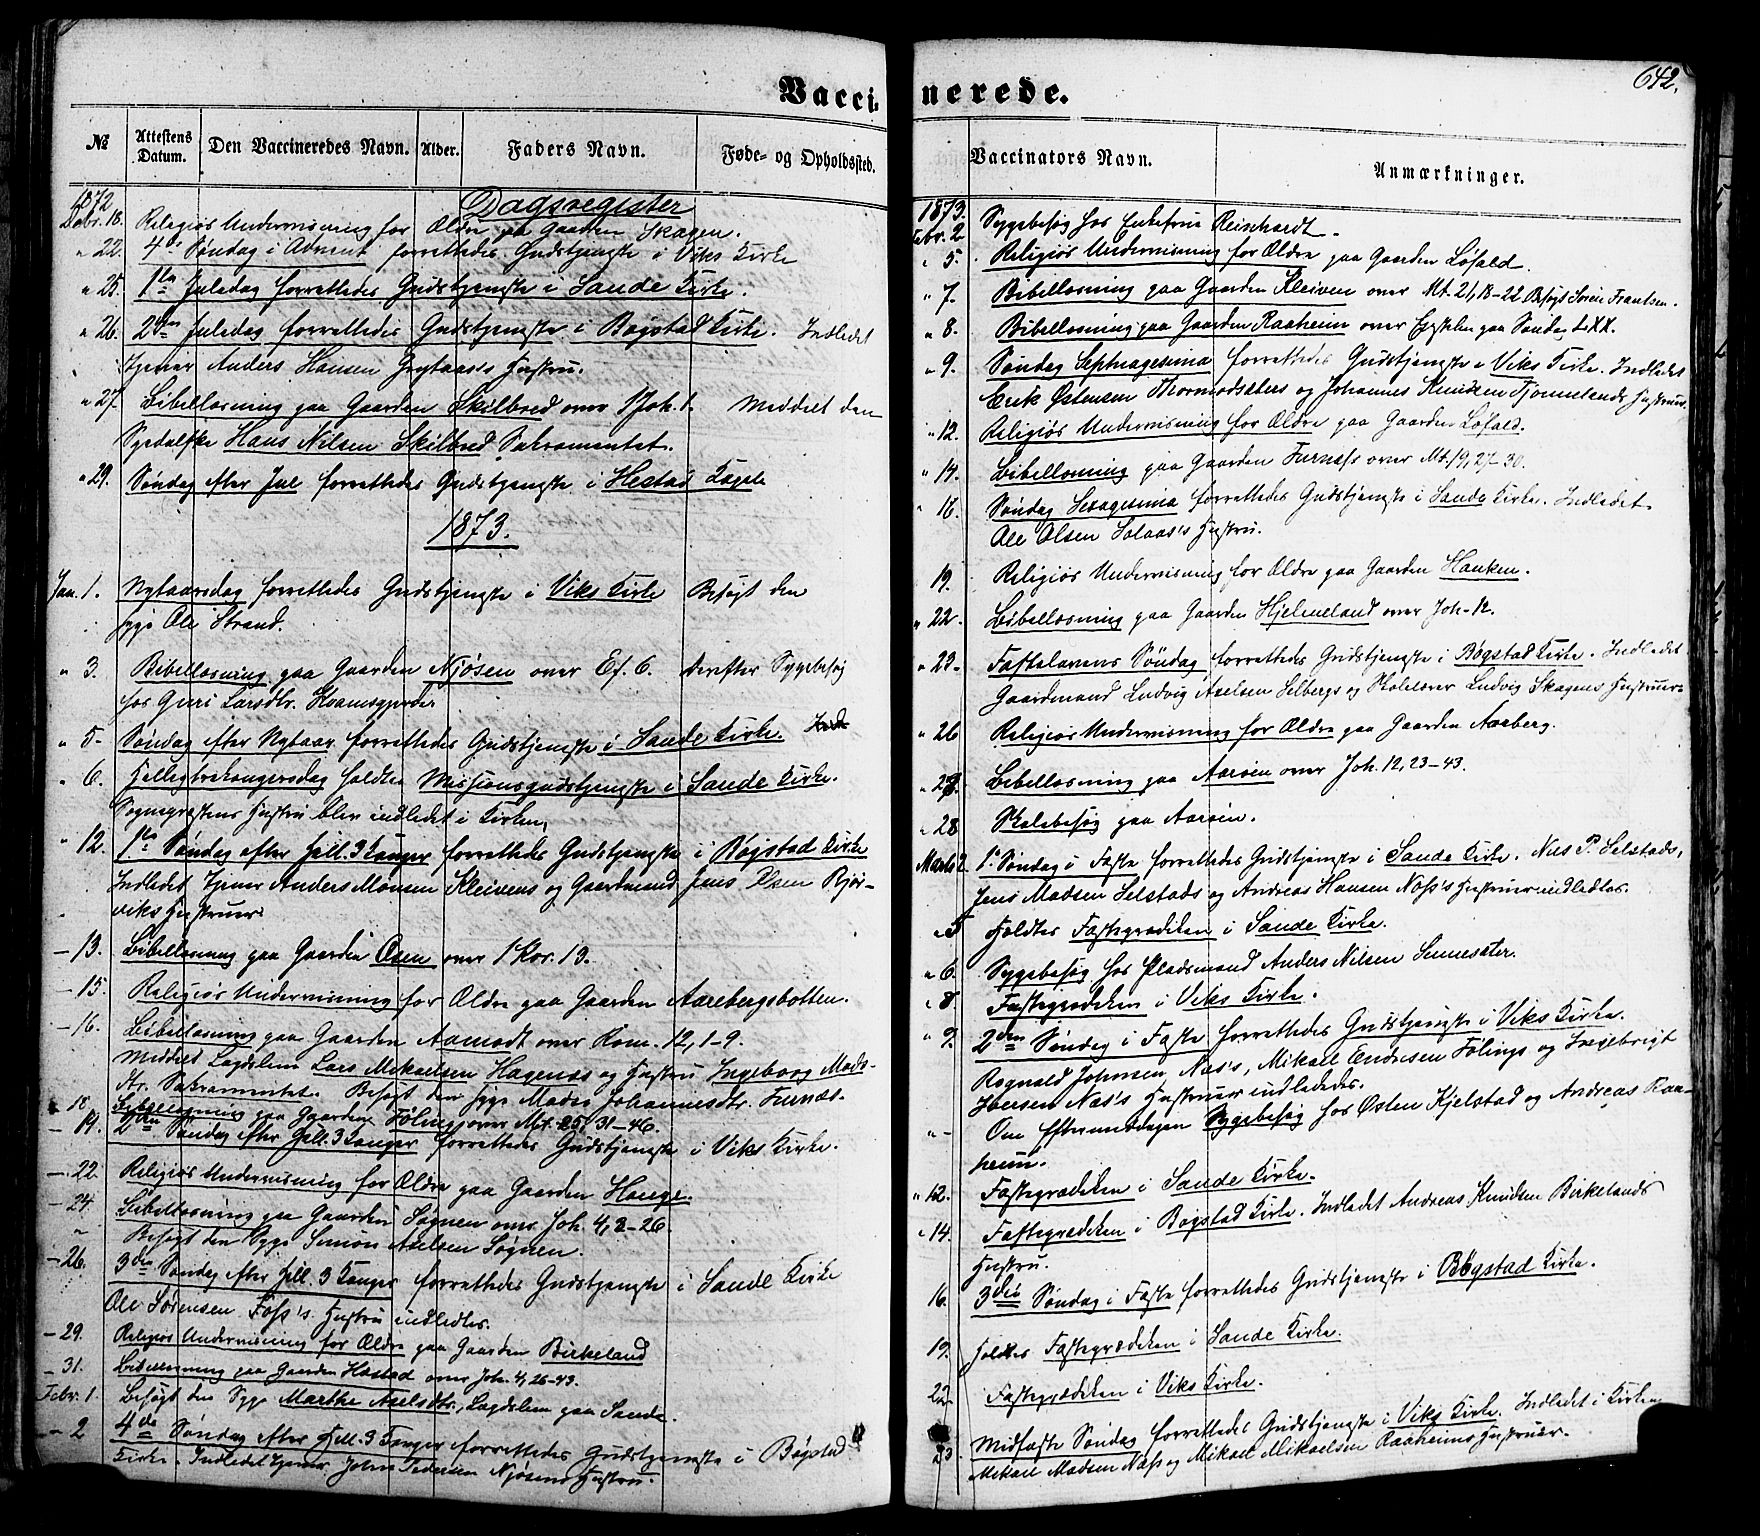 Vacci-
№
Attestens Datum.
Den Vaccineredes Navn.
Alder.
Faders Navn.
Føde- og Opholdssted.
Dagsregister
1872
Debr. 18. Religiøs Undervisning for Ældre paa Gaarden Skagen.
" 22. 4de Søndag i Advent forrettedes Gudstjeneste i Viks Kirke
" 25. 1ste Juledag forrettedes Gudstjeneste i Sande Kirke.
" 26. 2den Juledag forrettedes Gudstjeneste i Bøgstad Kirke. Indledet
Tjener Anders Hansen Grytaas's Hustru.
" 27. Bibellæsning paa Gaarden Skilbred over 1 Joh. 1. Meddelt den
Sygdalske Hans Nilsen Skilbred Sakramentet.
" 29. Søndag efter Jul forrettedes Gudstjeneste i Hestad Kapel
1873.
Jan. 1. Nytaarsdag forrettedes Gudstjeneste i Viks Kirke Besøgt den
syge Ole Strand.
" 3. Bibellæsning paa Gaarden Njøsen over Ef. 6. derefter Sygebesøg
hos Guri Larsdtr. Kvamsgjerde.
" 5. Søndag efter Nytaar forrettedes Gudstjeneste i Sande Kirke. Ind
" 6. Helligtrekongersdag holdtes Missionsgudstjeneste i Sande Kirke.
Sognepræstens Hustru blev indledet i Kirken,
" 12. 1ste Søndag efter Hell. 3 Konger forrettedes Gudstjeneste i Bøgstad Kirke
Indledet Tjener Anders Monsen Kleivens og Gaardmand Jens Olsen Bjør-
viks Hustruer.
– 13. Bibellæsning paa Gaarden Osen over 1 Kor. 13.
– 15. Religiøs Undervisning for Ældre paa Gaarden Aarebergsbotten.
– 16. Bibellæsning paa Gaarden Aamodt over Rom. 12, 1-9.
Meddelt Lægdslem Lars Mikaelsen Hagenæs og Hustru Ingeborg Mads-
dtr. Sakramentet. Besøgt den syge Madis Johannesdtr. Furnæs.
" 18 Bibellæsning paa Gaarden Føling over Mt. 25, 31-46.
– 19. 2den Søndag efter Hell. 3 Konger forrettedes Gudstjeneste i Viks Kirke.
– 22. Religiøs Undervisning for Ældre paa Gaarden Hauge.
– 24. Bibellæsning paa Gaarden Søgnen over Joh. 4, 2-26.
" Besøgt den Syge Simon Axelsen Søgnen.
– 26. 3die Søndag efter Hell. 3 Konger forrettedes Gudstjeneste i Sande Kirke
Ole Sørensen Foss's Hustru indledtes.
– 29. Religiøs Undervisning for Ældre paa Gaarden Birkeland
– 31. Bibellæsning paa Gaarden Hæstad over Joh. 4, 26-43.
Febr. 1. Besøgt den Syge Marthe Axelsdtr., Lægdslem paa Sande.
– 2 4de Søndag efter Hell. 3 Konger forrettedes Gudstjeneste i Bøgstad
Kirke. Indledet Tjener Johns Pedersen Njøsens Hustru.
nerede.
642.
Vaccinators Navn.
Anmærkninger.
1873.
Febr. 2 Sygebesøg hos Enkefrue Reinhardt.
" 5. Religiøs Undervisning for Ældre paa Gaarden Løfald.
" 7. Bibellæsning paa Gaarden Kleiven over Mt. 21, 18-22 Besøgt Søren Frantsen.
" 8. Bibellæsning paa Gaarden Raaheim over Epistelen paa Sønd. LXX.
" 9. Søndag Septuagesima forrettedes Gudstjeneste i Viks Kirke. Indledet
Erik Østensen Thormodsæters og Johannes Knudsen Tjønnelands Hustruer.
" 12. Religiøs Undervisning for Ældre paa Gaarden Løfald.
" 14. Bibellæsning paa Gaarden Furnæs over Mt. 19, 27-30.
" 16. Søndag Sexagesima forrettedes Gudstjeneste i Sande Kirke. Indledet
Ole Olsen Solaas's Hustru.
19. Religiøs Undervisning for Ældre paa Gaarden Hauken.
" 22. Bibellæsning paa Gaarden Hjelmeland over Joh. 12.
" 23. Fastelavens Søndag forrettedes Gudstjeneste i Bøgstad Kirke. Indledet
Gaardmand Ludvig Axelsen Selbergs og Skolelærer Ludvig Skagens Hustruer.
" 26 Religiøs Undervisning for Ældre paa Gaarden Aarberg.
" 28. Bibellæsning paa Aarøen over Joh. 12, 23-43.
" 28 Skolebesøg paa Aarøen.
Marts 2. 1. Søndag i Faste forrettedes Gudstjeneste i Sande Kirke. Nils P. Selstads,
Jens Madsen Selstads og Andreas Hansen Næss's Hustruer indledtes.
" 5 Holdtes Fasteprædiken i Sande Kirke.
" 6. Sygebesøg hos Pladsmand Anders Nilsen Sennesæter.
" 8. Fasteprædiken i Viks Kirke.
" 9. 2den Søndag i Faste forrettedes Gudstjeneste i Viks Kirke.
Rognald Johnsen Næs's, Mikael Endresen Følings og Ingebrigt
Iversen Næs's Hustruer indledes.
" – Om Eftermiddagen Sygebesøg hos Østen Kjelstad og Andreas Raa-
heim.
" 12. Fasteprædiken i Sande Kirke.
" 14. Fasteprædiken i Bøgstad Kirke. Indledet Andreas Knudsen Birkelands
Hustru.
16. 3die Søndag i Faste forrettedes Gudstjeneste i Bøgstad Kirke.
19. Holdtes Fasteprædiken i Sande Kirke.
22 Fasteprædiken i Viks Kirke.
23. Midfaste Søndag forrettedes Gudstjeneste i Viks Kirke. Indledet i Kirken
Mikael Madsen Næss og Mikael Mikaelsen Raaheims Hustruer.